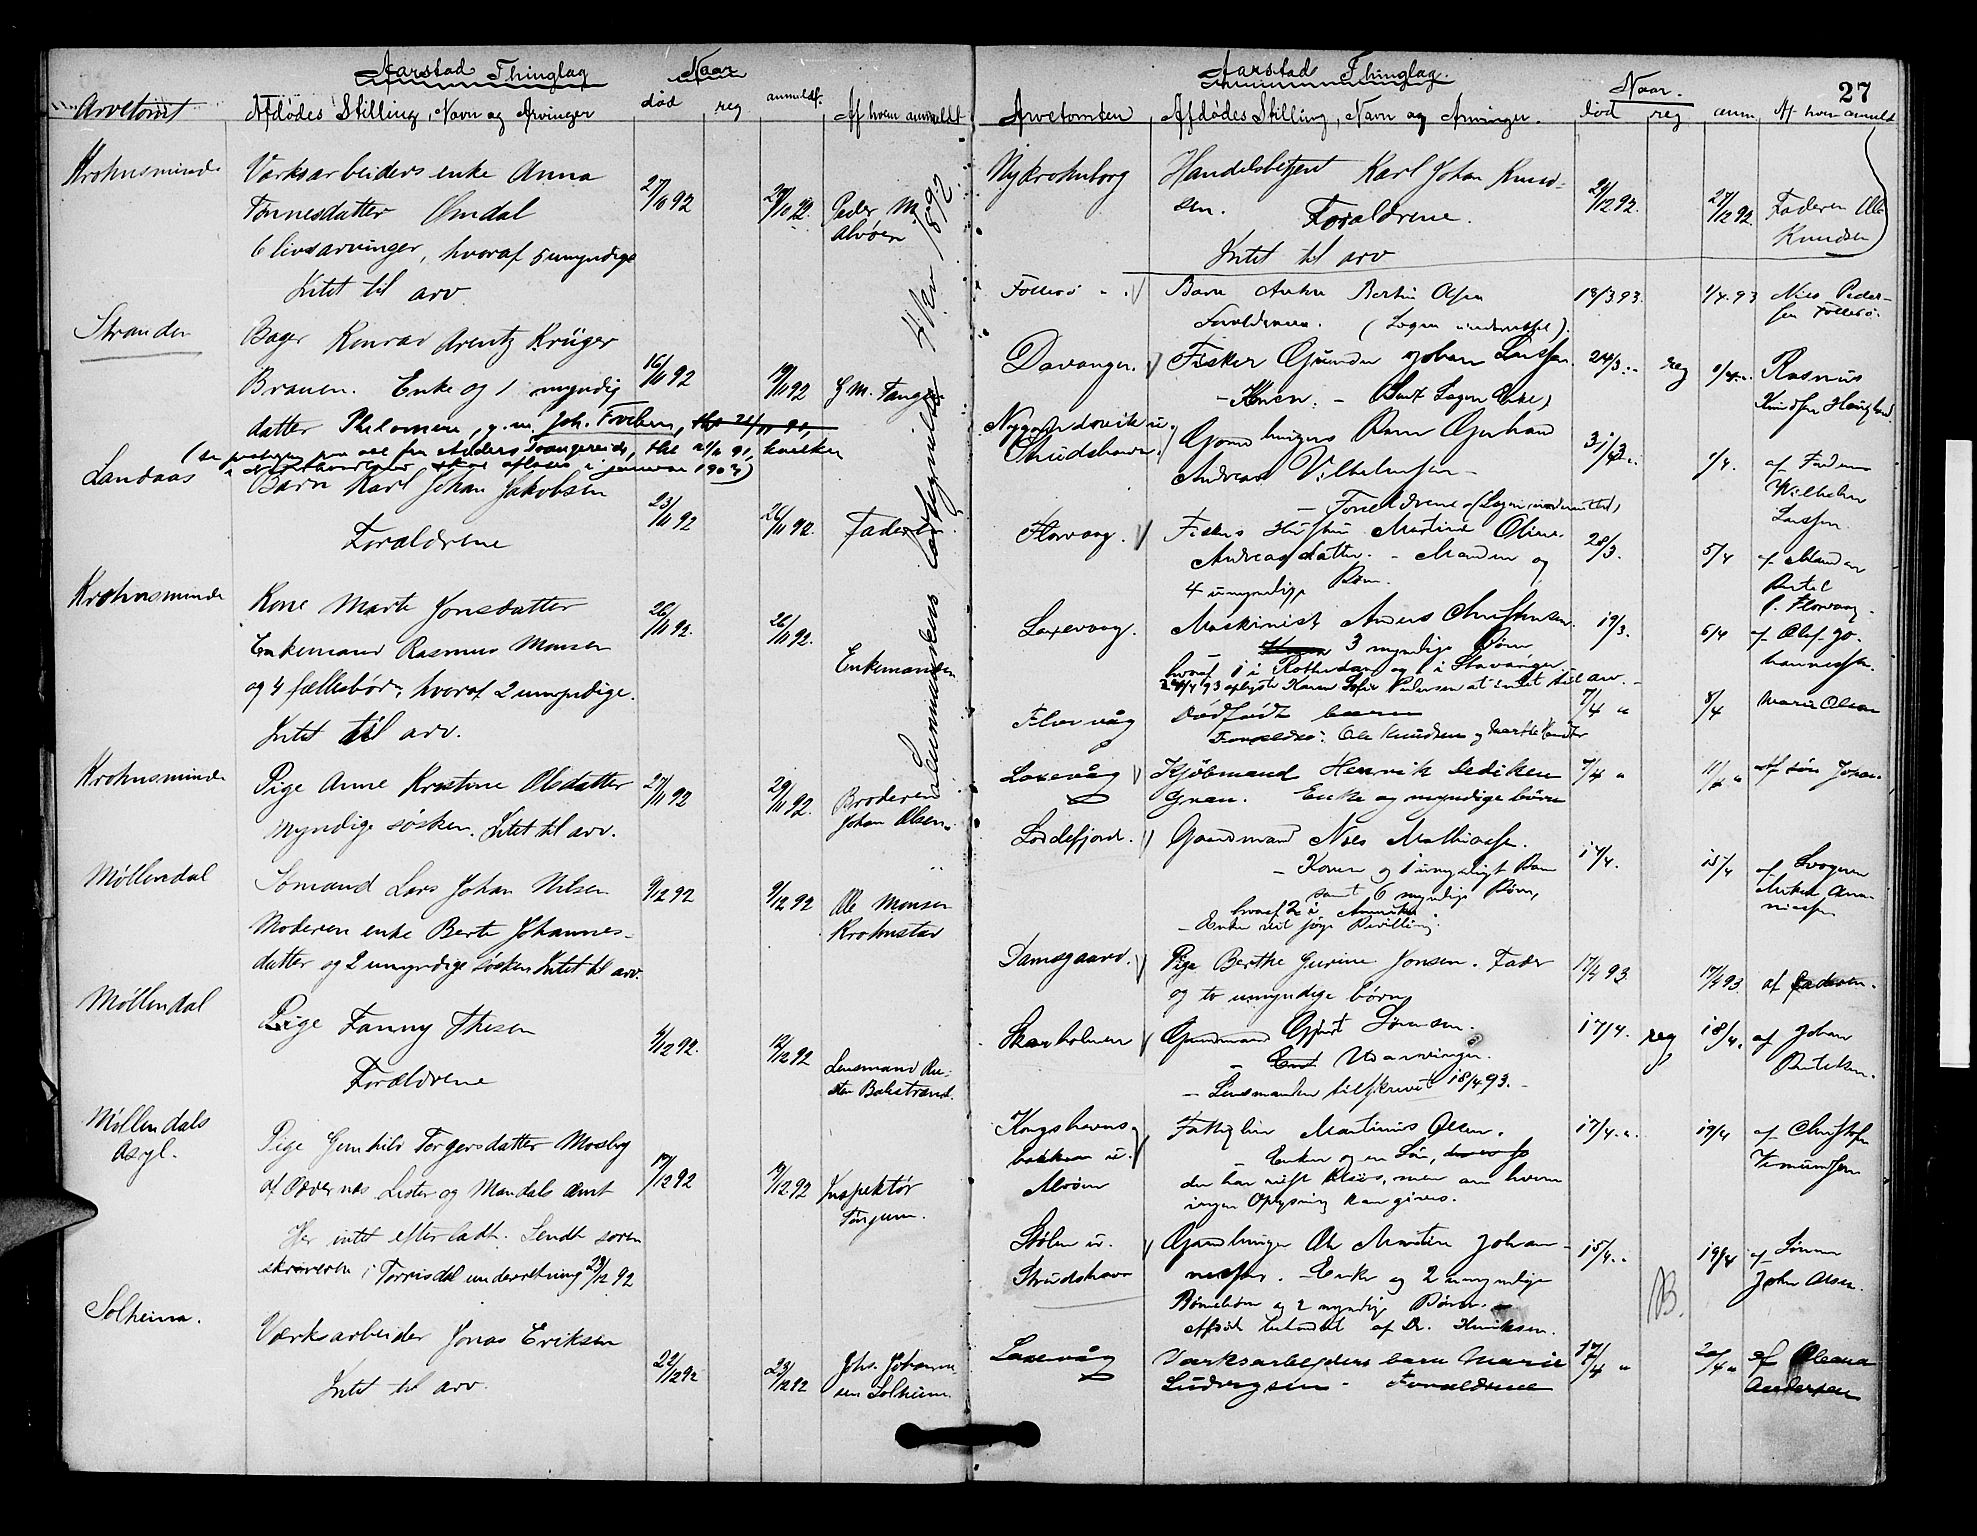 Aarstad Thinglag
Naar
Arvetomt
Afdødes Stilling, Navn og Arvinger
død
reg
anmeldt.
Af hvem anmeldt
Krohnsminde
Værksarbeiders enke Anna
Tønnesdatter Omdal
6 livsarvinger, hvoraf 5 umyndige
Intet til arv
27/10 92
29/10 92
Peder M.
Alvøen
Stranden
Bager Konrad Arentz Krüger
Brauen. Enke og 1 myndig
datter Philomene, g. m. Joh.
16/11 92
19/11 92
G. M. Tange
i januar 1903)
Landaas
Barn Karl Johan Jakobsen
Forældrene
23/11 92
26/11 92.
Faderen
Krohnsminde
Kone Marte Jonsdatter
Enkemand Rasmus Monsen
og 4 fællesbørn, hvoraf 2 umyndige.
Intet til arv.
26/11 92.
26/11 92.
Enkemanden
Krohnsminde
Pige Anne Kristine Olsdatter
Myndige søsken. Intet til arv.
27/11 92
29/11 92.
Broderen
Johan Olsen.
Møllendal
Sømand Lars Johan Nilsen
Moderen enke Berte Johannes-
datter og 2 umyndige søsken Intet til arv.
9/12 92
9/12 92
Ole Monsen
Krohnstad
Møllendal
Pige Fanny Thesen
Forældrene
4/12 92.
12/12 92
Lensmand
Balestrand.
Møllendals
Asyl.
Pige Gunhild Torgersdatter Mosby
af Oddernes Lister og Mandals amt
Her intet efterladt. Sendt soren
skriveren i Torrisdal underretning 23/12 92
17/12 92
19/12 92
Inspektør
Solheim.
Værksarbeider Jonas Eriksen
Intet til arv.
22/12 92
23/12 92
Johs. Johanne-
sen Solheim.
Lensmandens
4. kv 1892
27
Aarstad Thinglag.
Naar.
Arvetomten
Afdødes Stilling, Navn og Arvinger.
død
reg
anm.
Af hvem anmeldt
Nykrohnborg
Handelsbetjent Karl Johan Knud-
sen. Forældrene.
Intet til arv
21/12 92.
27/12 92.
Faderen Ole
Knudsen
Follesø
Barn Bertin Olsen
Forældrene. (Logen underrettet).
18/3 93.
1/4 93
Nils Peder-
sen Follesø.
Davanger.
Fisker Johan Larssen
24/3
reg
Rasmus
Knudsen Haugland
Andreas Vilhelmsen
31/3
1/4.
af Faderen
Wilhelm
Larssen.
Florvaag.
Fiskers Hustru Martine Oline
Andreasdatter. - Manden og
4 umyndige Børn.
28/3.
5/4
af Manden
Bertel
Florvaag
Laxevaag.
Maskinist Anders Christensen.
3 myndige Børn
hvoraf 1 i Rotterdam og 1 i Stavanger
24/4 93 oplyste Karen Sofie Pedersen at intet til arv.
19/3.
6/4
af Olaf Jo-
hannessen
Florvåg
Dødfødt barn
Forældre: Ole Knudsen og
7/4 "
8/4
Marie Olsen
Laxevåg
Kjøbmand Henrik Dediken
Gran. Enke og myndige børn
7/4 "
11/4 "
Af søn Johan
Loddefjord.
Gaardmand Nils Mathiassen.
- Konen og 1 umyndigt Barn
samt 6 myndige Børn,
hvoraf 2 i Amerika.
- Enken vil søge Bevilling.
14/4.
15/4
af Svogeren
Mikal Ana-
niassen
Damsgaard.
Pige Berthe Gurine Jonsen. Fader
og to umyndige børn
17/4 93.
17/4 93.
af faderen.
Skarholmen
Gaardmand Sørensen.
Udarvinger.
- Lensmanden tilskrevet 18/4 93. -
17/4.
reg
18/4.
af Johan
Bertelsen.
Kongshavns
bakken u.
Alvøen
Fattiglem Martinus Olsen.
Enke og en Søn,
der har reist Kløes, men om hvem
ingen Oplysning kan gives.
17/4
19/4
af Christofer
Stølen u.
Strudshavn
Gaardbruger Ole Martin Johan-
nessen. - Enke og 2 umyndige
Børnebørn og 2 myndige Børn. -
Afsked behandlet af Dr. Henriksen.
15/4
B.
19/4
af Sønnen
John Olsen.
Laxevåg
Værksarbejders barn Marie
Ludvigsen - Forældrene
17/4 "
20/4 "
af Oleana
Andersen